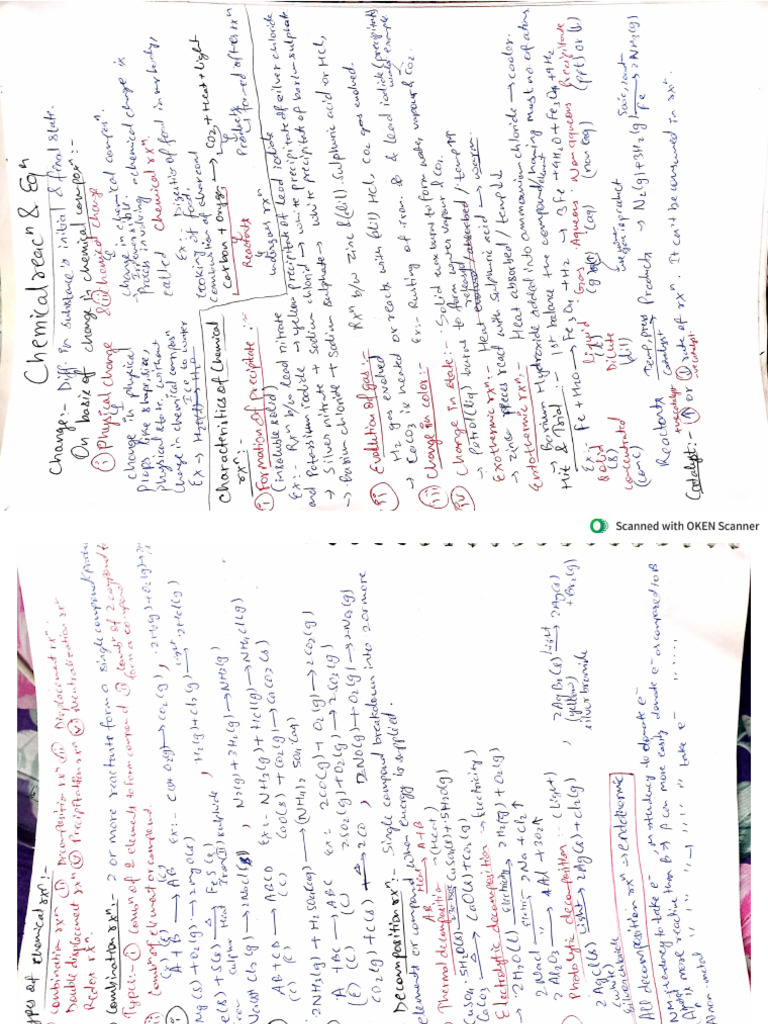 Chemical reacn & Eqn
Change:- Diff. in substance's initial & final state.
On basis of change in chemical compon:-
i) Physical change
change in physical
props like shape, size,
physical state without
change in chemical compon
Ex → Ice to water
ii) Chemical change
change in chemical compon.
→ Irreversible
Process involving a chemical change is
called chemical rxn.
Ex:- Digestion of food in my body,
cooking of food.
combustion of charcoal
Carbon + Oxygen → CO2 + Heat + Light
Reactants
Products
formed after rxn
undergoes rxn
Characteristics of Chemical
rxn:-
i) Formation of precipitate:-
(insoluble solid)
Ex:- Rxn b/w lead nitrate
and Potassium iodide → yellow precipitate of lead iodide
→ Silver nitrate + sodium chloride → white precipitate of silver chloride
→ Barium chloride + sodium sulphate → white precipitate of barium sulphate
ii) Evolution of gas:- Rxn b/w zinc & (dil) sulphuric acid or HCl,
H2 gas evolved
→ CaCO3 is heated or reacts with (dil) HCl, CO2 gas evolved.
iii) Change in color:- Ex:- Rusting of iron & lead iodide (precipitate)
iv) Change in state:- Solid wax burnt to form water vapour & CO2.
→ Petrol (liq) burnt to form water vapour & CO2.
Exothermic rxn:- Heat released / temp ↑↑
→ Zinc pieces react with sulphuric acid → warm.
Endothermic rxn:- Heat absorbed / temp ↓↓
→ Barium Hydroxide added into ammonium chloride → cooler.
Hit & Trial:- 1st balance the compound having most no of atoms
Ex:- Fe + H2O → Fe3O4 + H2 → 3Fe + 4H2O → Fe3O4 + 4H2
Solid
(s)
Liquid
(l)
Gas
(g)
Aqueous
(aq)
Non aqueous
(non aq)
Precipitate
(ppt) or (↓)
Concentrated
(conc)
Dilute
(dil)
Reactants → Products
Temp, press
Catalyst
→ N2(g) + 3H2(g) → 2NH3(g)
Fe
Catalyst:- ↑ or ↓ rate of rxn. It can't be consumed in rxn.
Scanned with OKEN Scanner
Types of chemical rxn:-
Combination rxn ii) Decomposition rxn iii) Displacement rxn
Double displacement rxn v) Precipitation rxn vi) Neutralization rxn
Redox rxn.
Combination rxn:- 2 or more reactants form a single compound/product
Types:- i) Combn of 2 elements to form compound ii) Combn of 2 compound to
form a compound
iii) Combn of element or compound.
A + B → AB Ex:- C(s) + O2(g) → CO2(g), 2H2(g) + O2(g) →
(E) (E) (C)
Mg(s) + O2(g) → MgO(s), H2(g) + Cl2(g) → 2HCl(g)
light
Fe(s) + S(s) → FeS(s)
Sulpur Heat Iron(II) sulphide
Cl2(g) → 2NaCl(s), N2(g) + 3H2(g) → NH3(g)
AB + CD → ABCD Ex:- NH3(g) + HCl(g) → NH4Cl(g)
(C) (C) (C) CaO(s) + CO2(g) → CaCO3(s)
2NH3(g) + H2SO4(aq) → (NH4)2SO4(aq)
A + BC → ABC Ex:- 2CO(g) + O2(g) → 2CO2(g)
(E) (C) (C) 2SO2(g) + O2(g) → 2SO3(g)
CO2(g) + C(s) → 2CO, 2NO(g) + O2(g) → 2NO2(g)
Decomposition rxn:- Single compound breakdown into 2 or more
elements or compound when energy is supplied.
AB → A + B
Heat
Thermal decomposition → (Heat)
CuSO4.5H2O(s) → CuSO4(s) + 5H2O(g)
CaCO3 → CaO(s) + CO2(g)
Electrolytic decomposition → (Electricity)
→ 2H2O(l) → 2H2(g) + O2(g)
Electricity
2NaCl → 2Na + Cl2↑
2Al2O3 → 4Al + 3O2↑
Photolytic decomposition:- (Light)
2AgCl(s) → 2Ag(s) + Cl2(g), 2AgBr(s) → 2Ag(s) + Br2(g)
Light
(white)
Silver chloride
(yellow)
silver bromide
All decomposition rxn → endothermic
NM → tendency to take e-, M → tendency to donate e-
A more reactive than B → A can more easily donate e- as compared to B
Non-metal " " " " " take e- " "